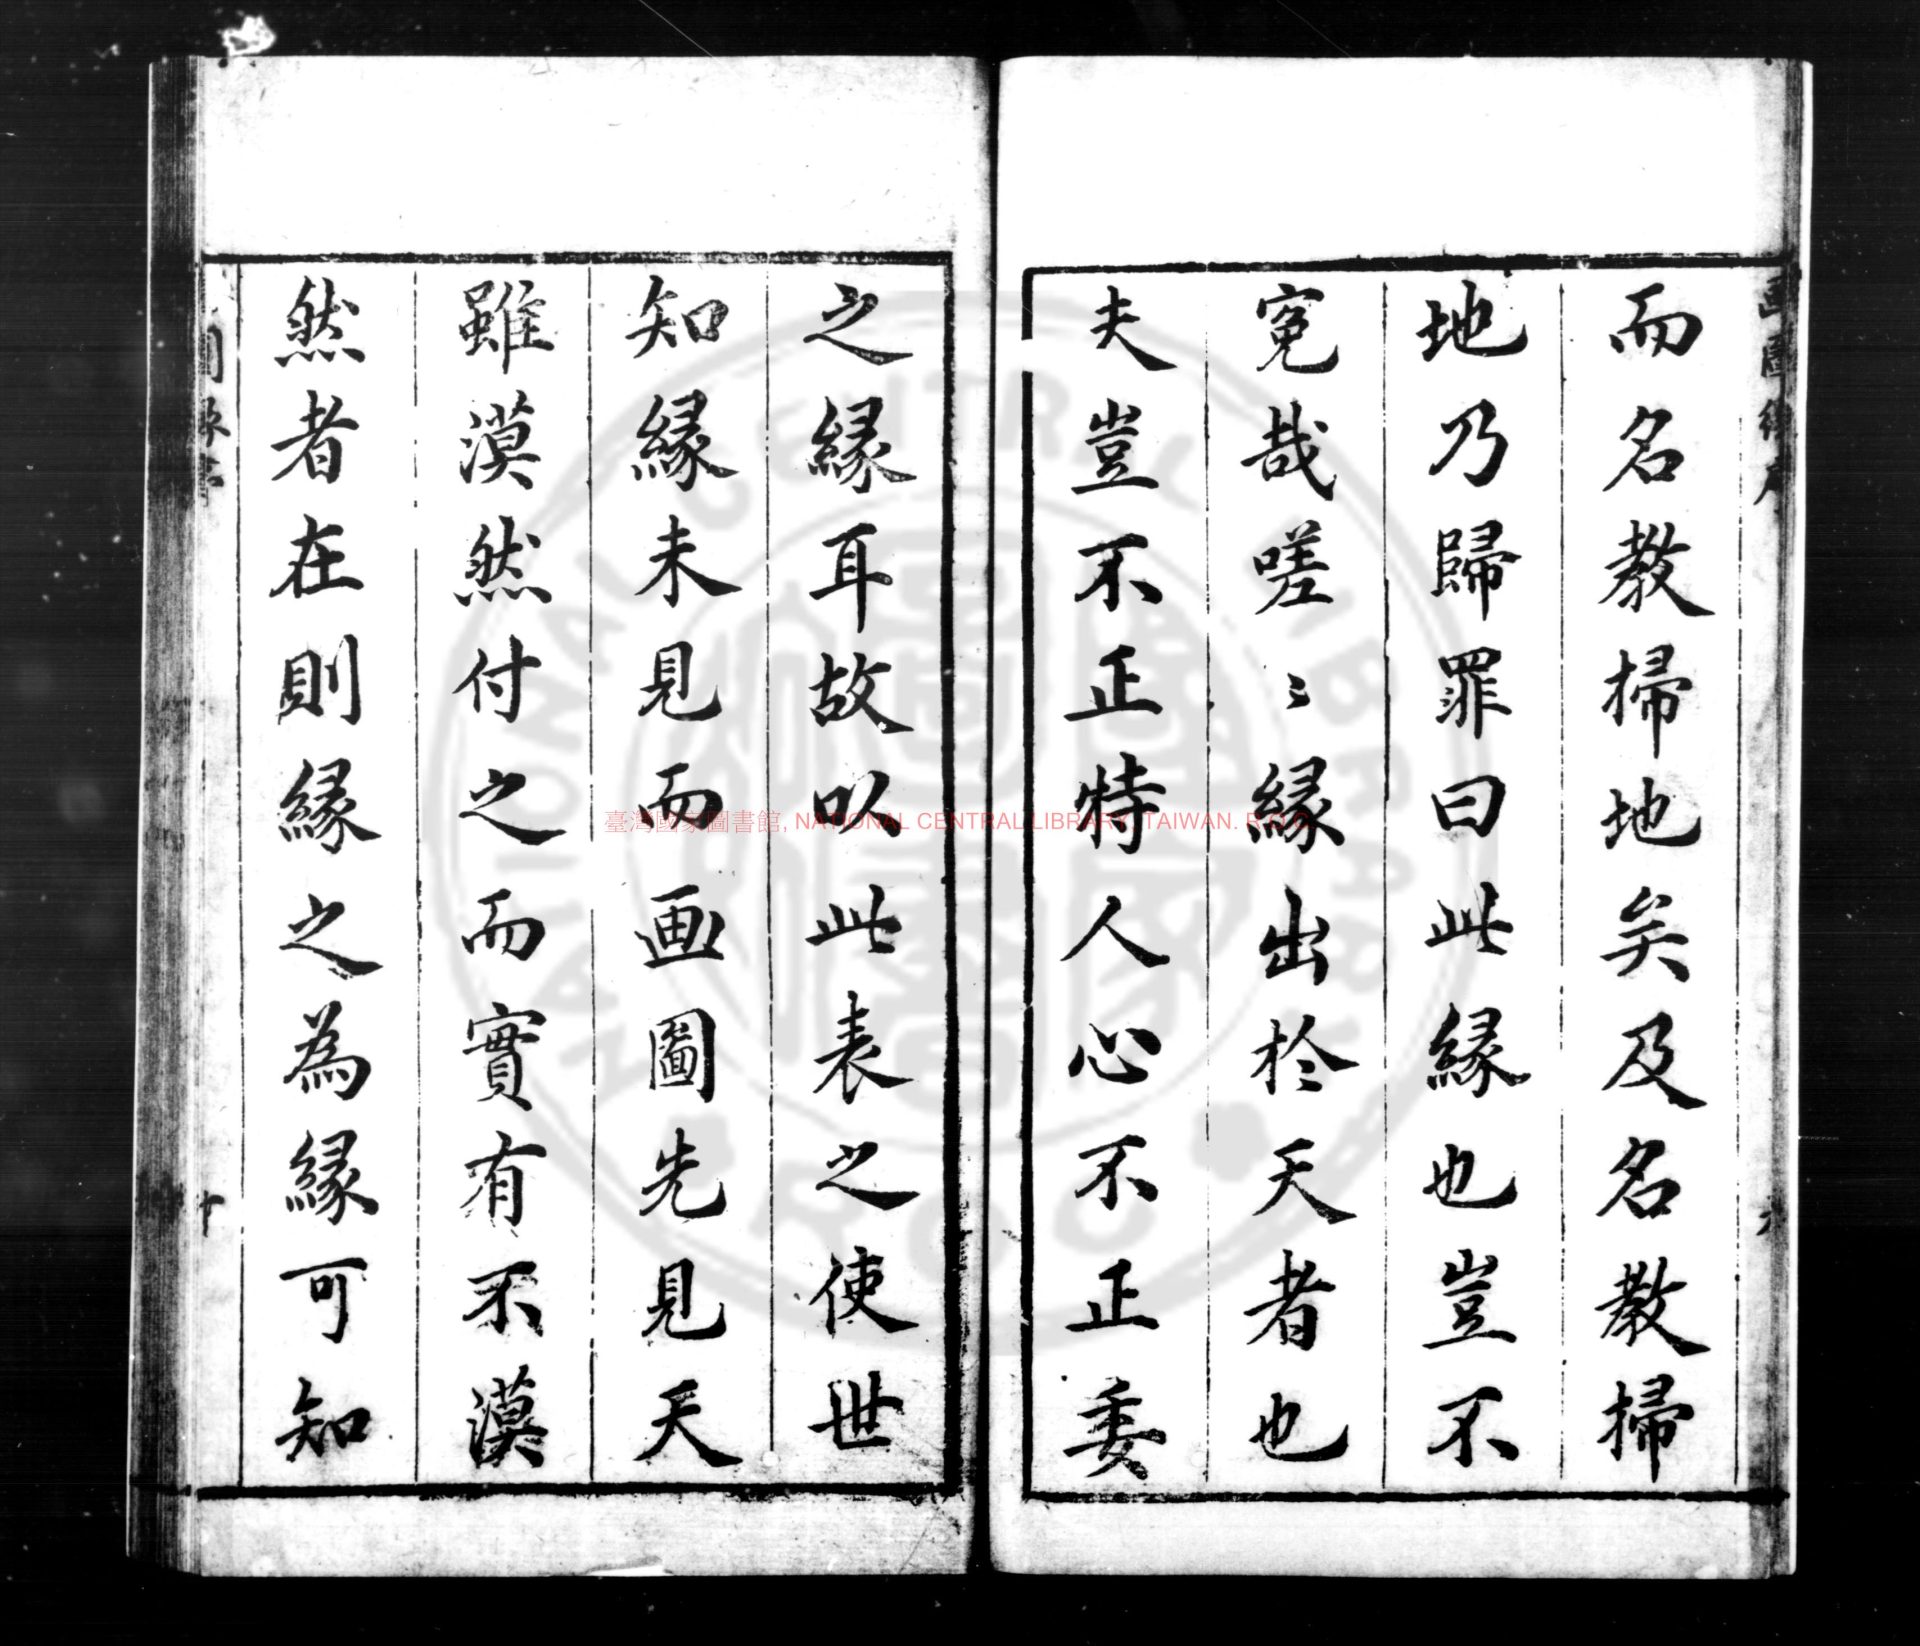 而名教掃地矣及名教掃
地乃歸罪曰此緣也豈不
寃哉嗟〻緣出於天者也
夫豈不正特人心不正委
之緣耳故以此表之使世
知緣未見而画圖先見天
雖漠然付之而實有不漠
然者在則緣之為緣可知
臺灣國家圖書館, NATIONAL CENTRAL LIBRARY, TAIWAN. R.O.C.
NATIONAL CENTRAL LIBRARY
ROC